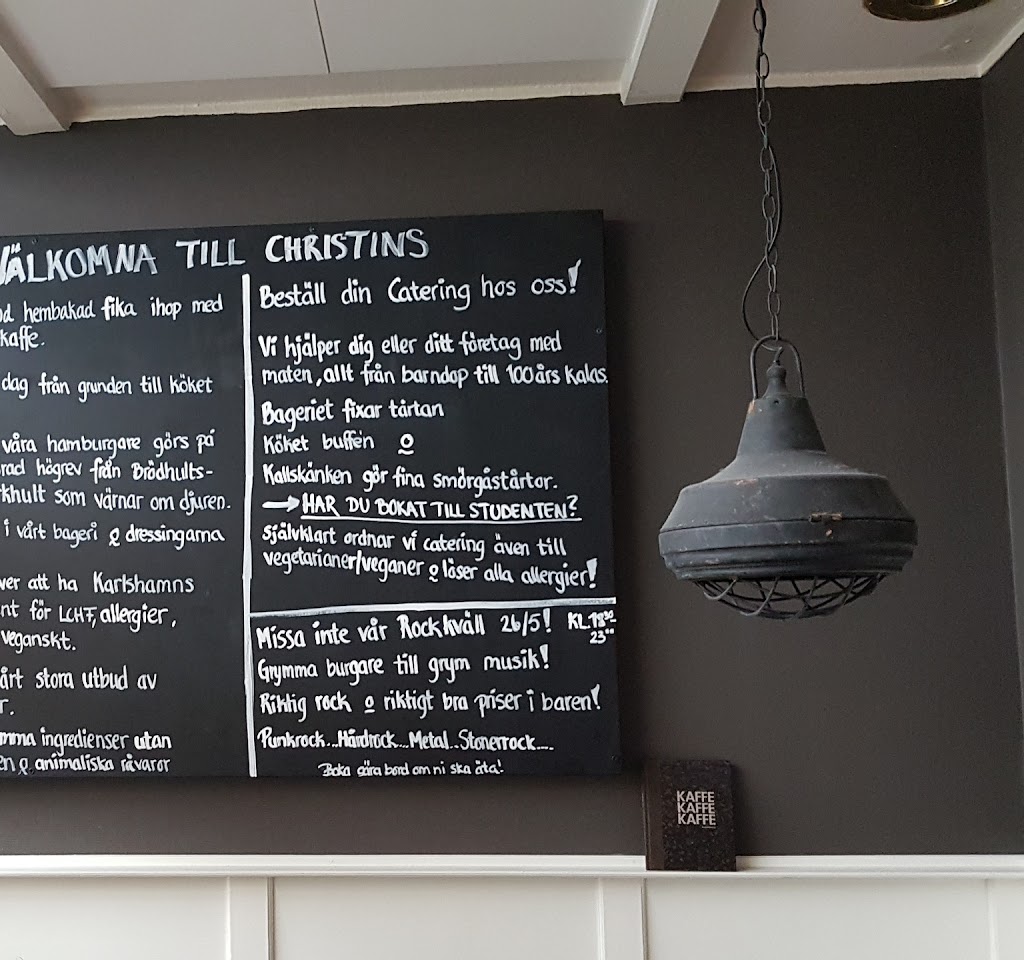 VÄLKOMNA TILL CHRISTINS
hembakad fika ihop med
kaffe.
dag från grunden till köket
våra hamburgare görs på
högrev från Brödhults-
som värnar om djuren.
i vårt bageri o dressingarna
att ha Karlshamns
för LCHF, allergier,
veganskt.
stora utbud av
ingredienser utan
o animaliska råvaror
Beställ din Catering hos oss!
Vi hjälper dig eller ditt företag med
maten, allt från barndop till 100års kalas.
Bageriet fixar tårtan
Köket buffén o
Kallskänken gör fina smörgåstårtor.
→ HAR DU BOKAT TILL STUDENTEN?
Självklart ordnar vi catering även till
vegetarianer/veganer o löser alla allergier!
Missa inte vår Rockkväll 26/5! KL 18³⁰
23⁰⁰
Grymma burgare till grym musik!
Riktig rock o riktigt bra priser i baren!
Punkrock...Hårdrock...Metal...Stonerrock....
Boka gära bord om ni ska äta!
KAFFE
KAFFE
KAFFE